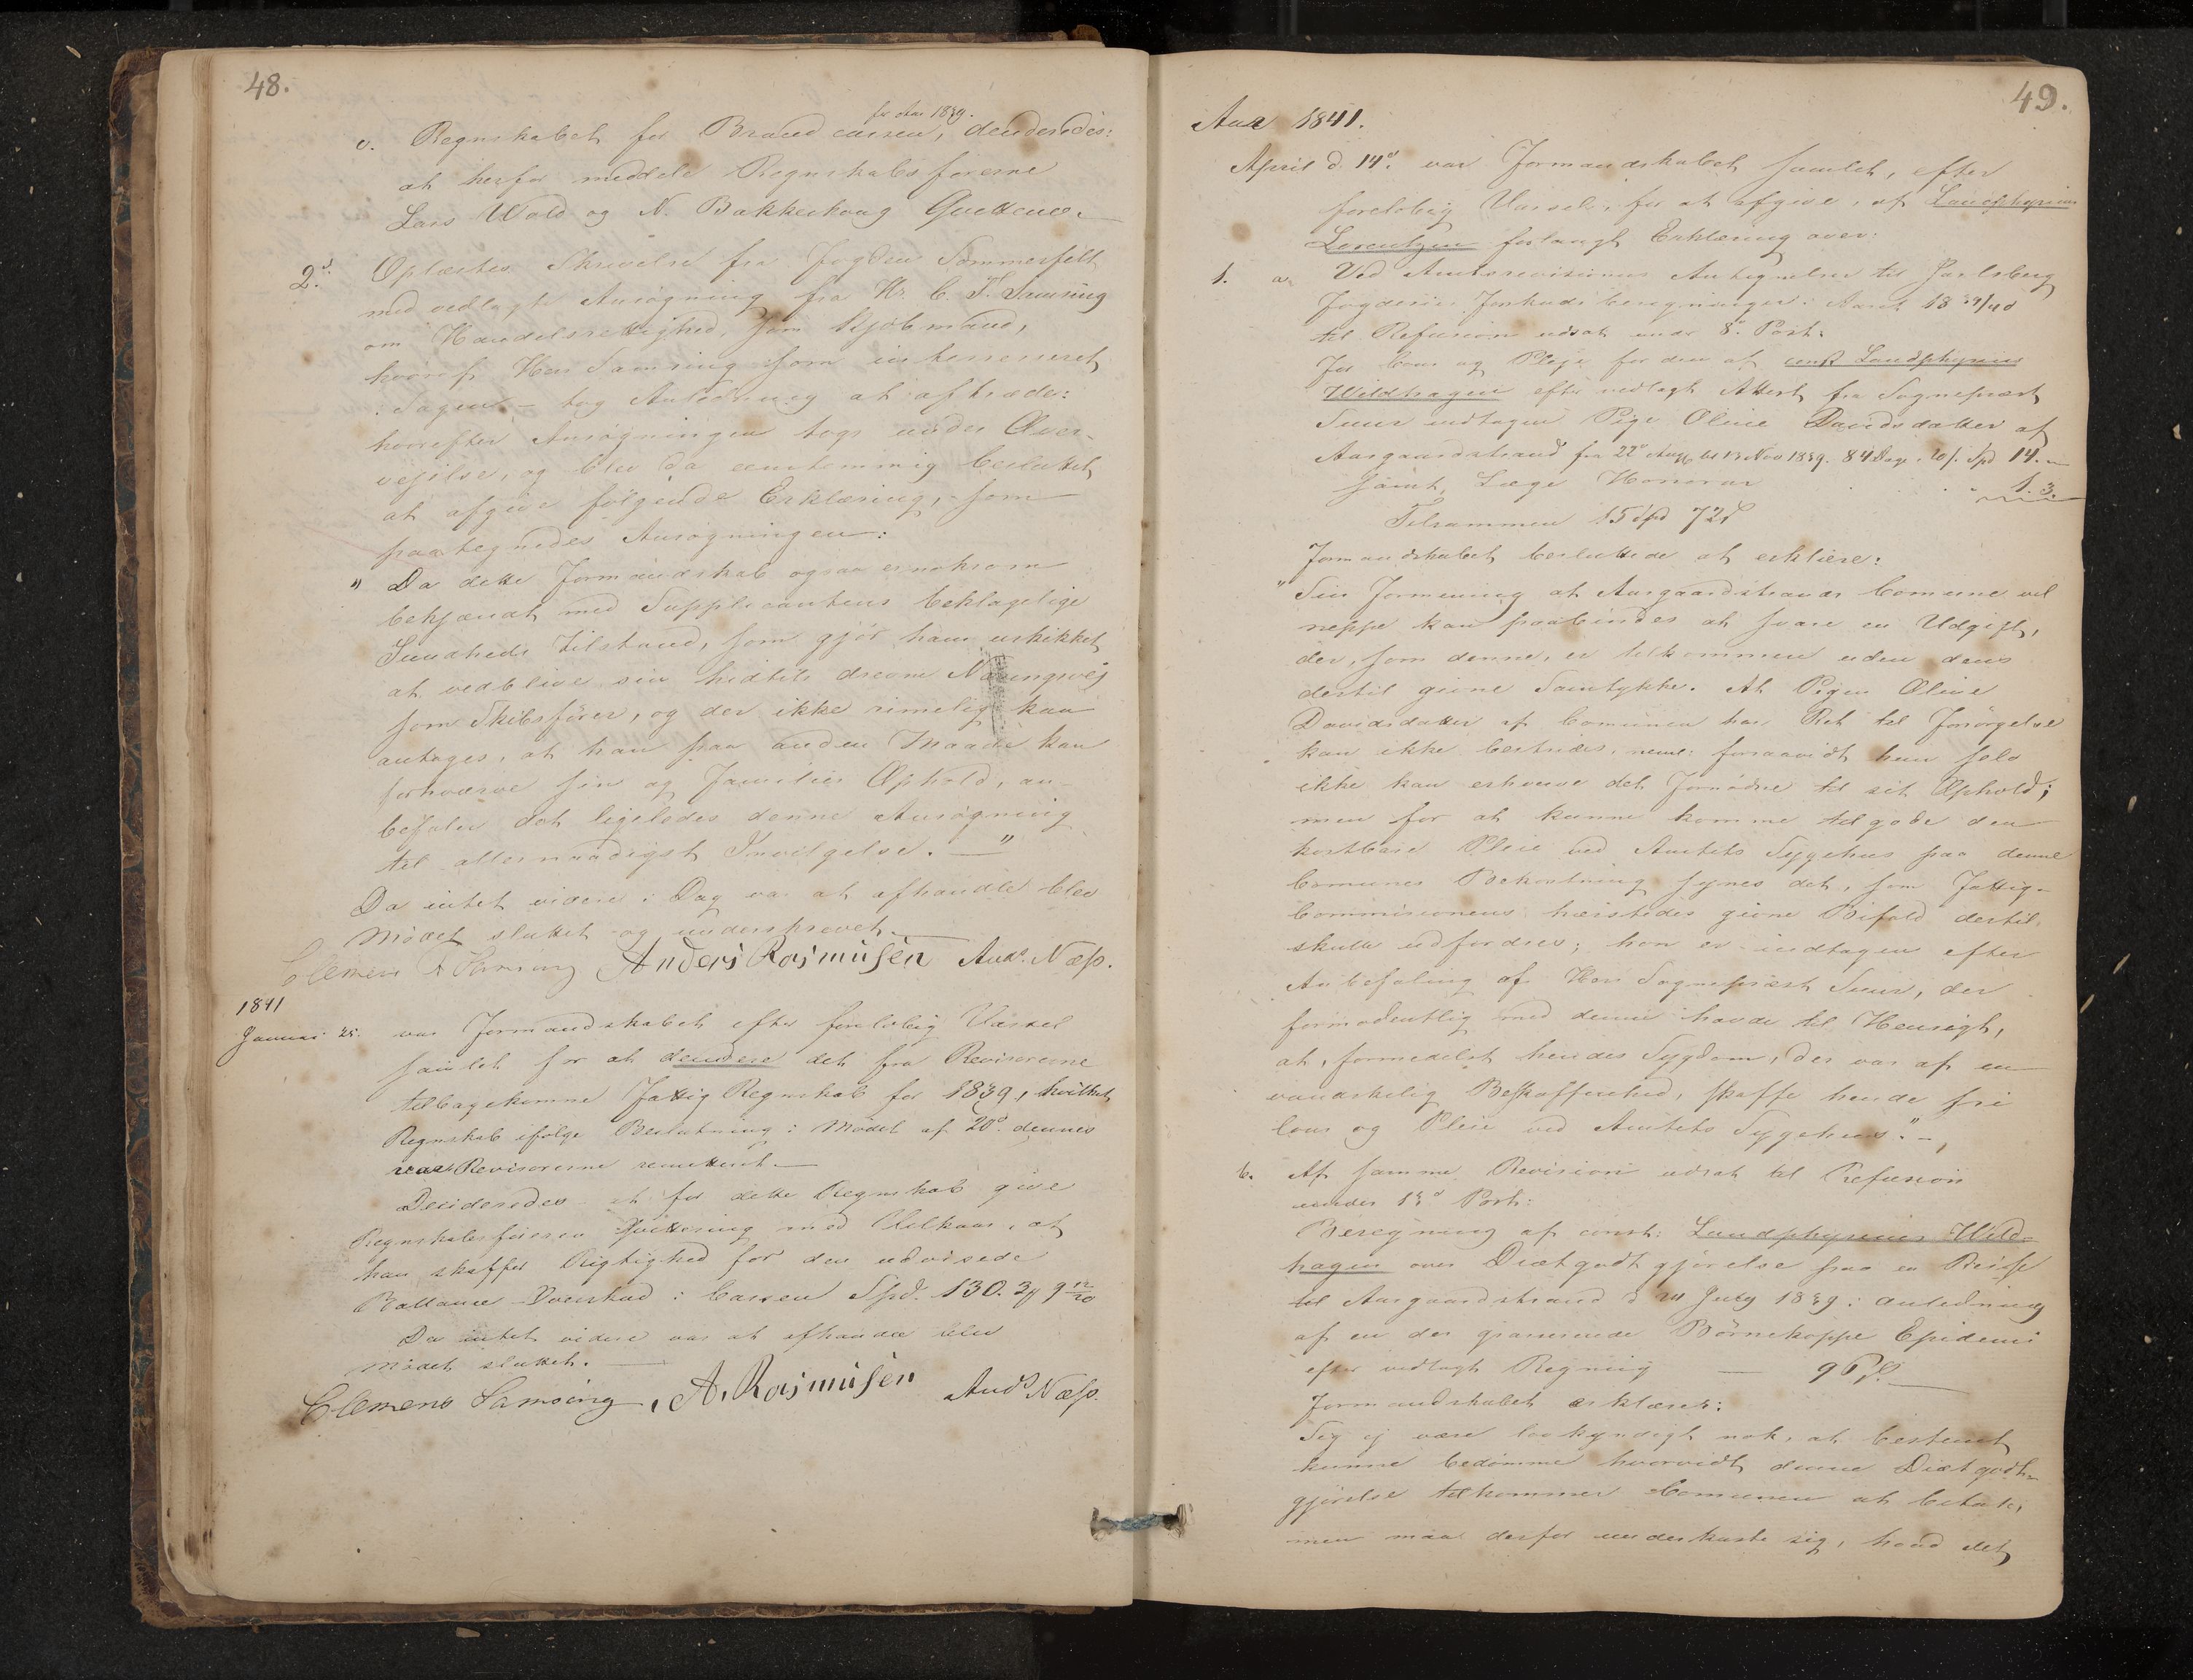 48.
for Aar 1839.
c. Regnskabet for Brandcassen, decideredes:
at herfor meddele Regnskabsførerne
Lars Wold og N. Bakkeskoug Qvittence.
2d. Oplæstes Skrivelse fra Fogden Sommerfelt
med vedlagte Ansøgning fra Hr. C. T. Samsing
om Handelsrettighed som Kjøbmand,
hvoraf Herr Samsing som interresseret
i Sagen – tog Anledning at aftræde:
hvorefter Ansøgningen togs under Over-
vejelse, og blev da eenstemmig besluttet
at afgive følgende Erklæring, som
paategnedes Ansøgningen:
" Da dette Formandskab ogsaa er noksom
bekjændt med Supplicantens beklagelige
Sundheds Tilstand, som gjør ham uskikket
at vedblive sin hidtil drevne Næringsvej
som Skibsfører, og der ikke rimelig kan
antages, at han paa anden Maade kan
forhværve sin og Families Ophold, an-
befales det ligeledes denne Ansøgning
til allernaadigst Indvilgelse. — "
Da intet videre i Dag var at afhandle blev
Mødet sluttet og underskrevet.
Clemens T Samsing Anders Rasmusen Ands. Næss.
1841
Januar 25. var Formandskabet efter foreløbig Varsel
samlet for at decidere det fra Revisorerne
tilbagekomne Fattig Regnskab for 1839, hvilket
Regnskab ifølge Beslutning i Mødet af 20d. dennes
var Revisorerne remitteret —
Decideredes at for dette Regnskab give
Regnskabsføreren Qvittering med Vilkaar, at
han skaffer Rigtighed for den udviisede
Ballance Overskud i Cassen Spd. 130. 3 9 12/20
Da intet videre var at afhandle blev
Mødet sluttet. —
Clemens Samsing, A. Rasmusen Ands Næss.
49.
Aar 1841.
April d. 14d. var Formandskabet samlet, efter
foreløbig Varsel, for at afgive, af Landphysicus
Lorentzen forlangt Erklæring over:
1. a. Ved Amtsrevisionens Antegnelser til Jarlsberg
Fogderies Forskudsberegninger i Aaret 1839/40
til Refusion udsat under 8d. Post:
For Cour og Pleje for den af const Landphysicus
Wildhagen efter vedlagt Attest fra Sognepræst
Smur indtagen Pige Oline Davidsdatter af
Aasgaardstrand fra 22d Aug. til 13 Nov 1839. 84 Dage. 20 s. Spd 14. –
samt, Læge Honorar . . . 1. 3.
Tilsammen 15 Spd 72 s
Formandskabet besluttede at erklære:
" Sin Formening at Aasgaardstrands Comune vel
neppe kan paabindes at svare en Udgift,
der, som denne, er tilkommen uden dens
dertil givne Samtykke. At Pigen Oline
Davidsdatter af Comunen har Ret til Forsørgelse
kan ikke bestrides, neml: forsaavidt hun selv
ikke kan erhverve det Fornødne til sit Ophold;
men for at kunne komme tilgode den
kostbare Pleie ved Amtets Sygehus paa denne
Comunes Bekostning synes det, som Fattig-
Commissionens hærstedes givne Bifald dertil
skulle udfordres; hun er indtagen efter
Anbefaling af Herr Sognepræst Smur, der
formodentlig med denne havde til Hensigt,
at, formedelst hendes Sygdom, der var af en
vanskelig Beskaffenhed, skaffe hende fri
Cour og Pleie ved Amtets Sygehuus." –,
b. Af samme Revision udsat til Refusion
under 13d Post:
Beregning af const: Landphysicus Wild-
hagen over Diætgodtgjørelse paa en Reise
til Aasgaardstrand d July 1839 i Anledning
af en der grasserende Børnekoppe Epidemi
efter vedlagt Regning — 96 s. —
Formandskabet erklærer:
Sig ej være lovkyndigt nok, at bestemt
kunne bedømme hvorvidt denne Diætgodt-
gjørelse tilkommer Comunen at betale,
men maa derfor underkaste sig, hvad det